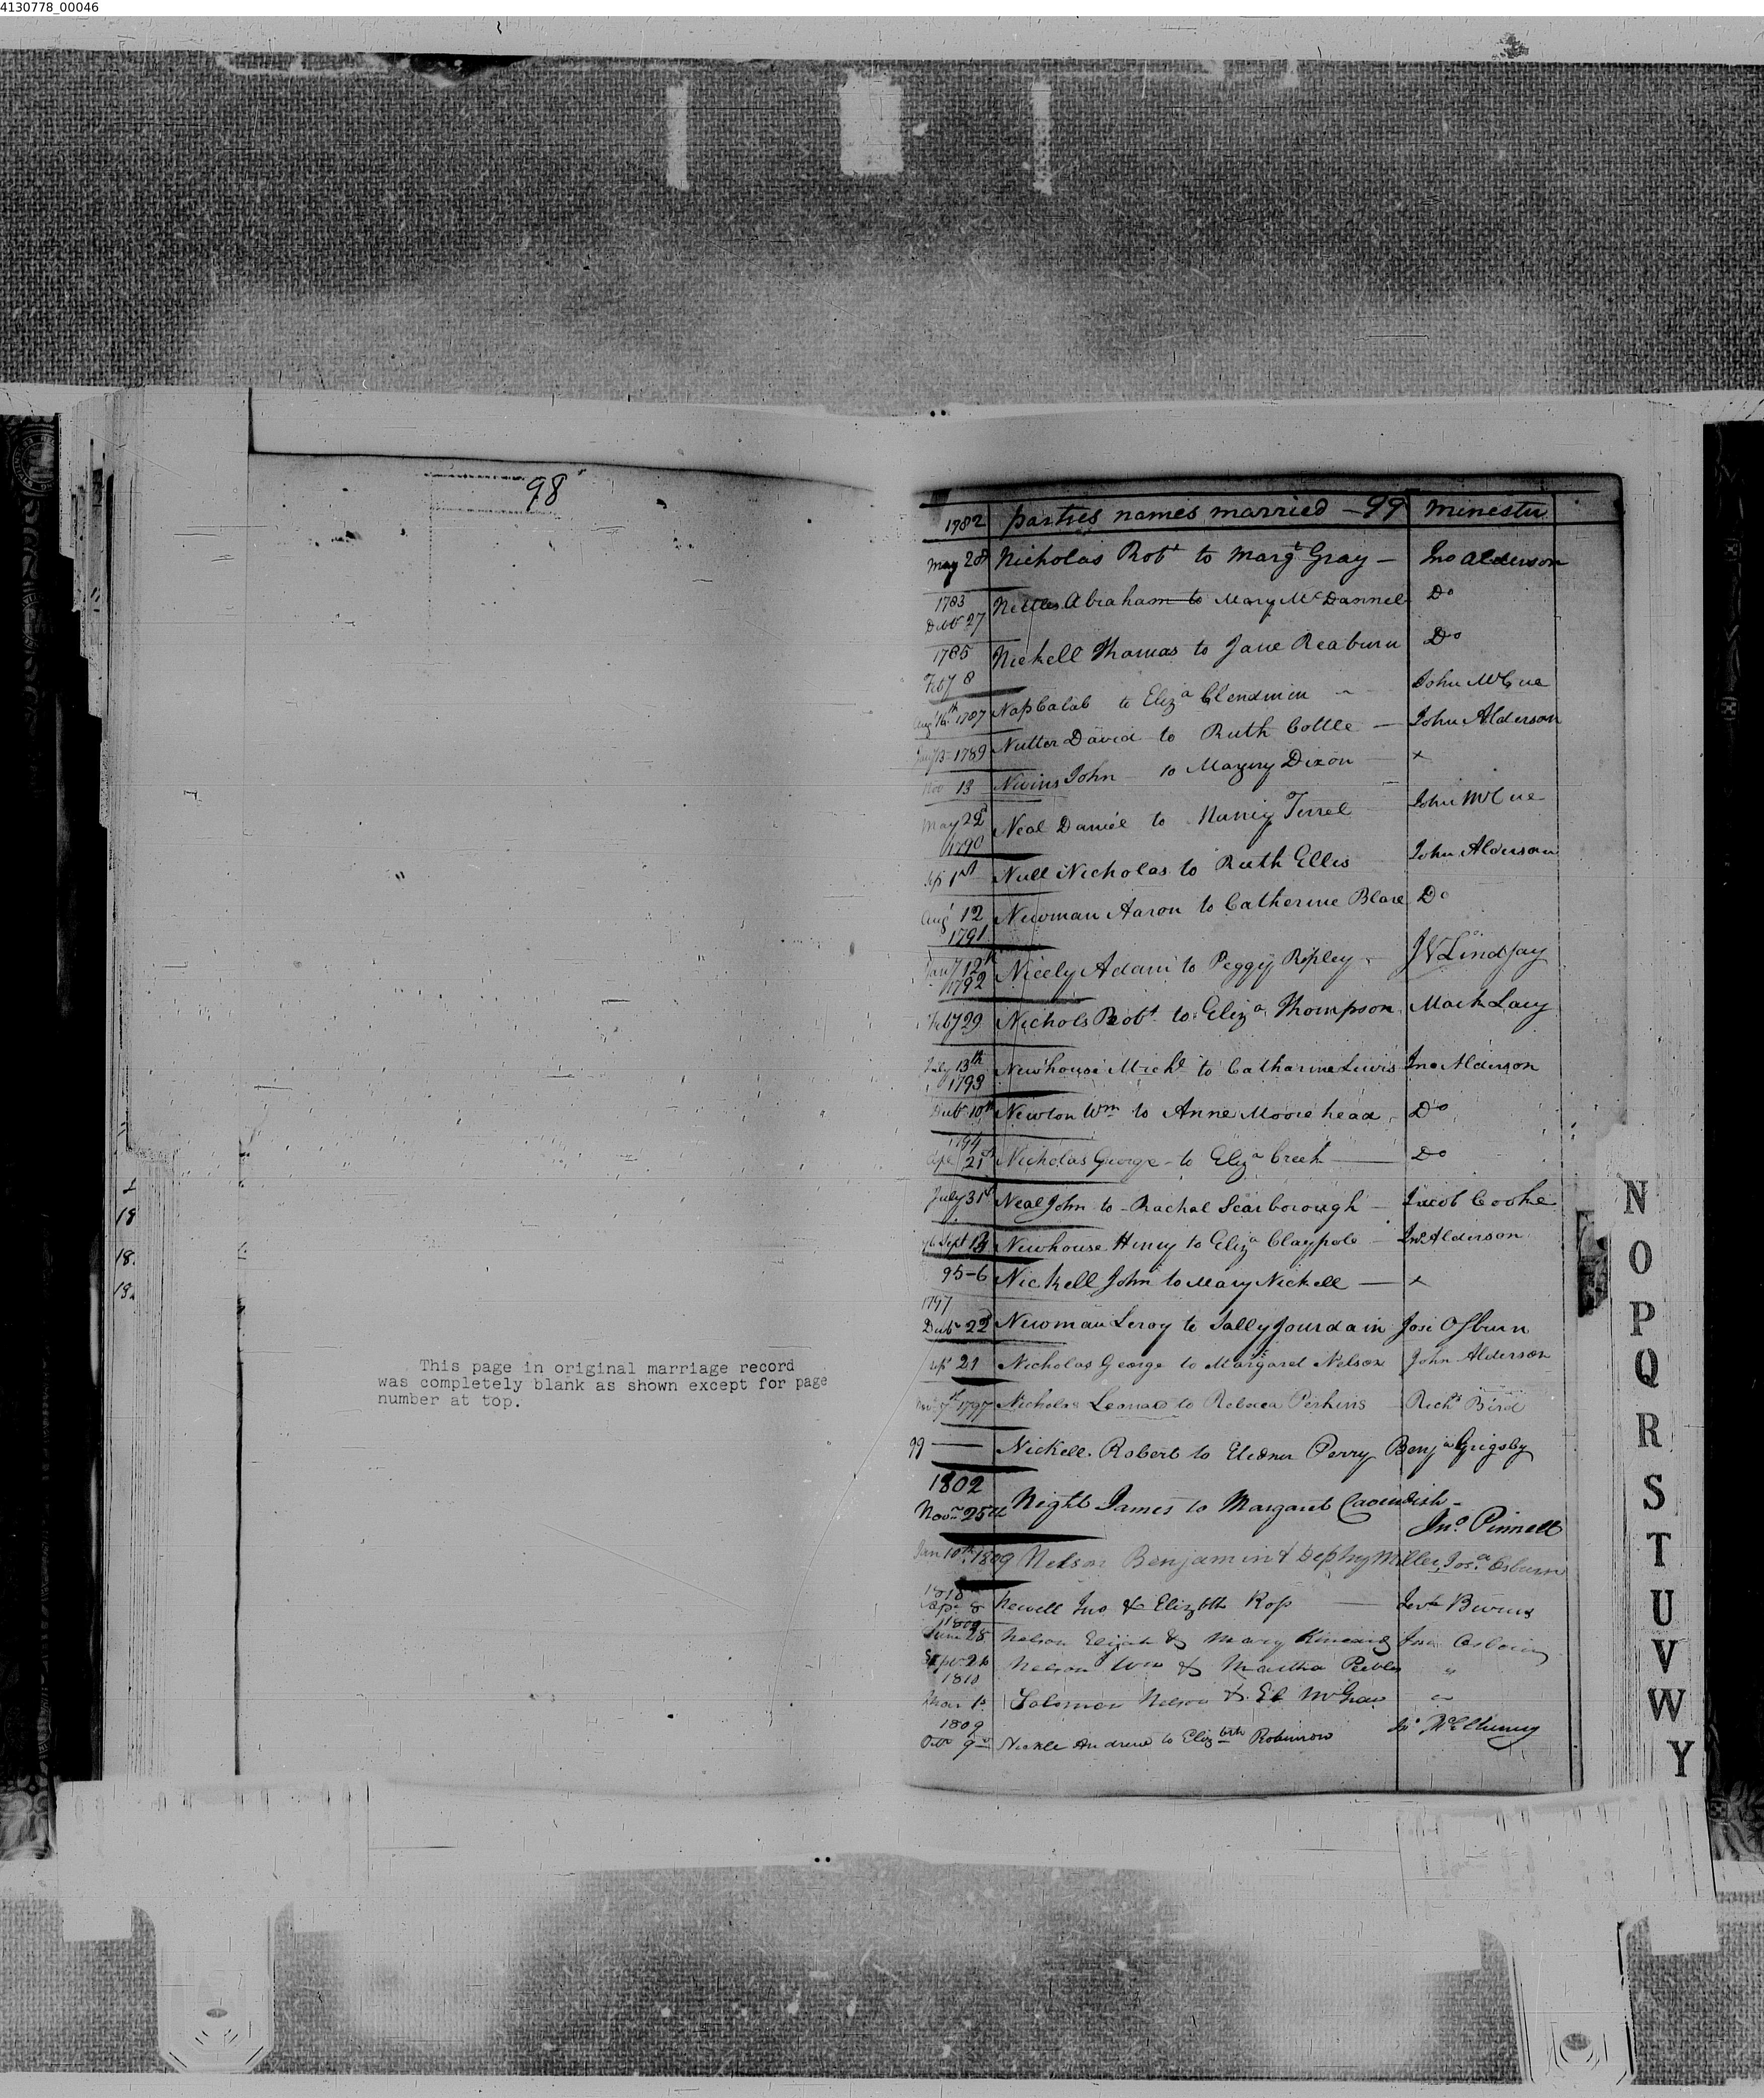 4130778_00046
98
This page in original marriage record
was completely blank as shown except for page
number at top.
1782 parties names married - 99 Minester
May 28 Nicholas Robt to Margt Gray - Jno Alderson
1783
Decbr 27 Nettles Abraham to Mary McDannel Do
1785 Nickell Thomas to Jane Reaburn Do
Feby 8
Augt 16th 1787 Nap Calab to Eliza Clendinin John McCue
Jany 13 1789 Nutter David to Ruth Cottle - John Alderson
Nov 13 Nivins John - to Magery Dixon x
May 22d Neal Daniel to Nancy Terrel John McCue
1790
Sep 1st Null Nicholas to Ruth Ellis John Alderson
Augt 12 Newman Aaron to Catherine Blare Do
1791
Jany 12th Nicely Adam to Peggy Ripley - J Lindsay
1792
Feby 29 Nichols Robt to Eliza Thompson Mark Lacy
July 13th Newhouse Michl to Catharine Lewis Jno Alderson
1793
Decbr 10th Newton Wm to Anne Moorehead Do
1794
Apl 21st Nicholas George - to Eliza Creek Do
July 31st Neal John to Rachal Scarborough - Jacob Cooke
Sept 13 Newhouse Henry to Eliza Claypole - Jno Alderson
95-6 Nickell John to Mary Nickell x
1797
Decbr 22d Newman Leroy to Sally Jourdain Josi Osburn
Sept 21 Nicholas George to Margaret Nelson John Alderson
7th 1797 Nicholas Leonard to Rebecca Perkins Richd Bird
99 Nickell Robert to Eleoner Perry Benja Grigsby
1802
Novr 25th Night James to Margaret Cavendish -
Jno Pinnell
Jan 10th 1809 Nelson Benjamin & Dephy Miller Josa Osburn
1818
Apr 8 Newell Jno & Elizbth Ross
1809
June 28 Nelson Elijah & Mary Kincaid Osborn
Sept 21 Nelson Wm & Martha Peebles "
1810
Mar 1 Solomon Nelson & El McGraw "
1809
Octr 9th Nickle Andrew to Elizbth Robinson Jn McElhenny
N
O
P
Q
R
S
T
U
V
W
Y